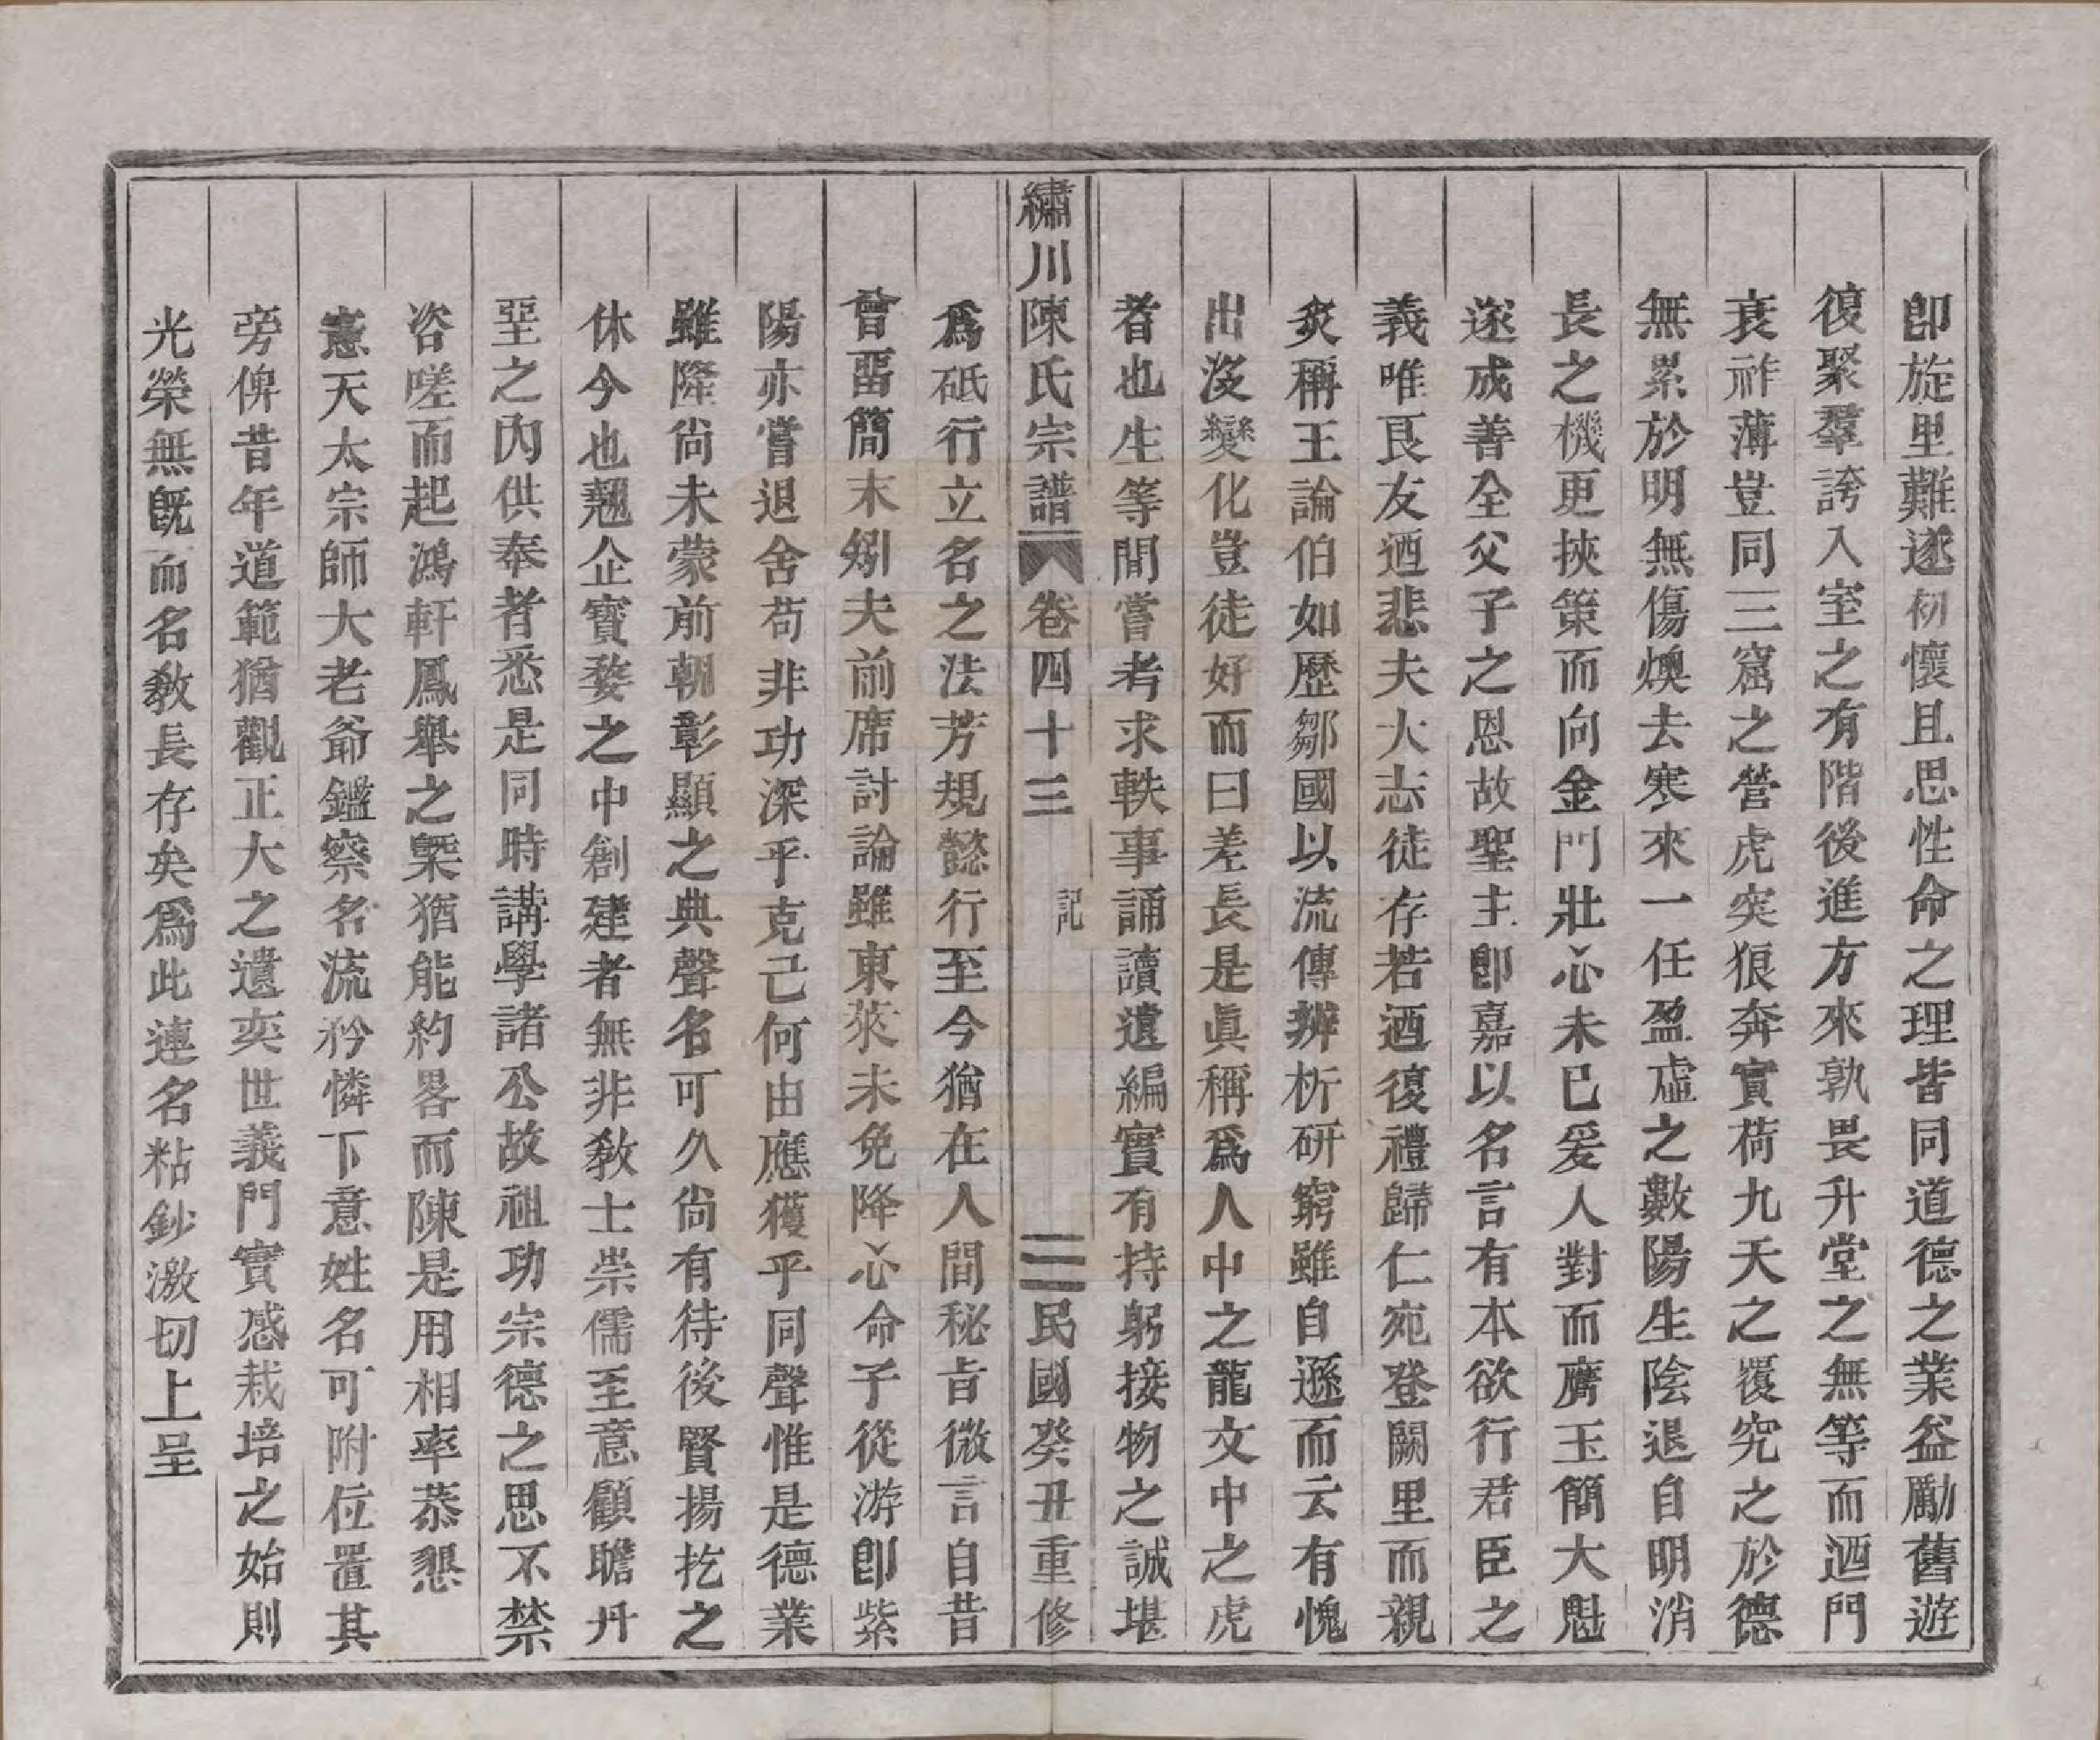 卽旋里難遂初懷且思性命之理皆同道德之業益勵舊遊
復聚羣誇入室之有階後進方來孰畏升堂之無等而迺門
衰祚薄豈同三窟之營虎突狼奔實荷九天之覆究之於德
無累於明無傷燠去寒來一任盈虛之數陽生陰退自明消
長之機更挾策而向金門壯心未已爰人對而膺玉簡大魁
遂成善全父子之恩故聖主卽嘉以名言有本欲行君臣之
義唯良友迺悲夫大志徒存若迺復禮歸仁宛登闕里而親
炙稱王論伯如歷鄒國以流傳辨析研窮雖自遜而云有愧
出没變化豈徒好而曰差長是眞稱爲人中之龍文中之虎
者也生等閒嘗考求軼事誦讀遺編實有持躬接物之誠堪
繡川陳氏宗譜 卷四十三 記 二 民國癸丑重修
爲砥行立名之法芳規懿行至今猶在人間秘旨微言自昔
曾畱簡末矧夫前席討論雖東萊未免降心命子從游卽紫
陽亦嘗退舍苟非功深乎克己何由應獲乎同聲惟是德業
雖隆尙未蒙前朝彰顯之典聲名可久尙有待後賢揚扢之
休今也翹企寶婺之中創建者無非敎士崇儒至意顧瞻丹
堊之內供奉者悉是同時講學諸公故祖功宗德之思不禁
咨嗟而起鴻軒鳳舉之槩猶能約畧而陳是用相率恭懇
憲天太宗師大老爺鑑察名流矜憐下意姓名可附位置其
旁俾昔年道範猶觀正大之遺奕世義門實感栽培之始則
光榮無旣而名敎長存矣爲此連名粘鈔激切上呈